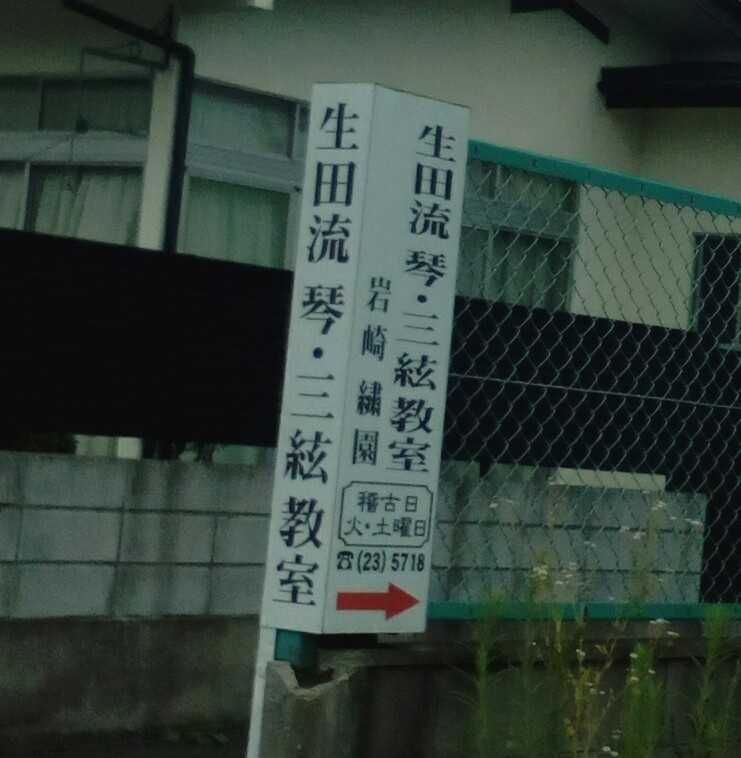 生田流 琴・三絃教室
生田流 琴・三絃教室
岩崎繍園
稽古日
火・土曜日
☎(23)5718